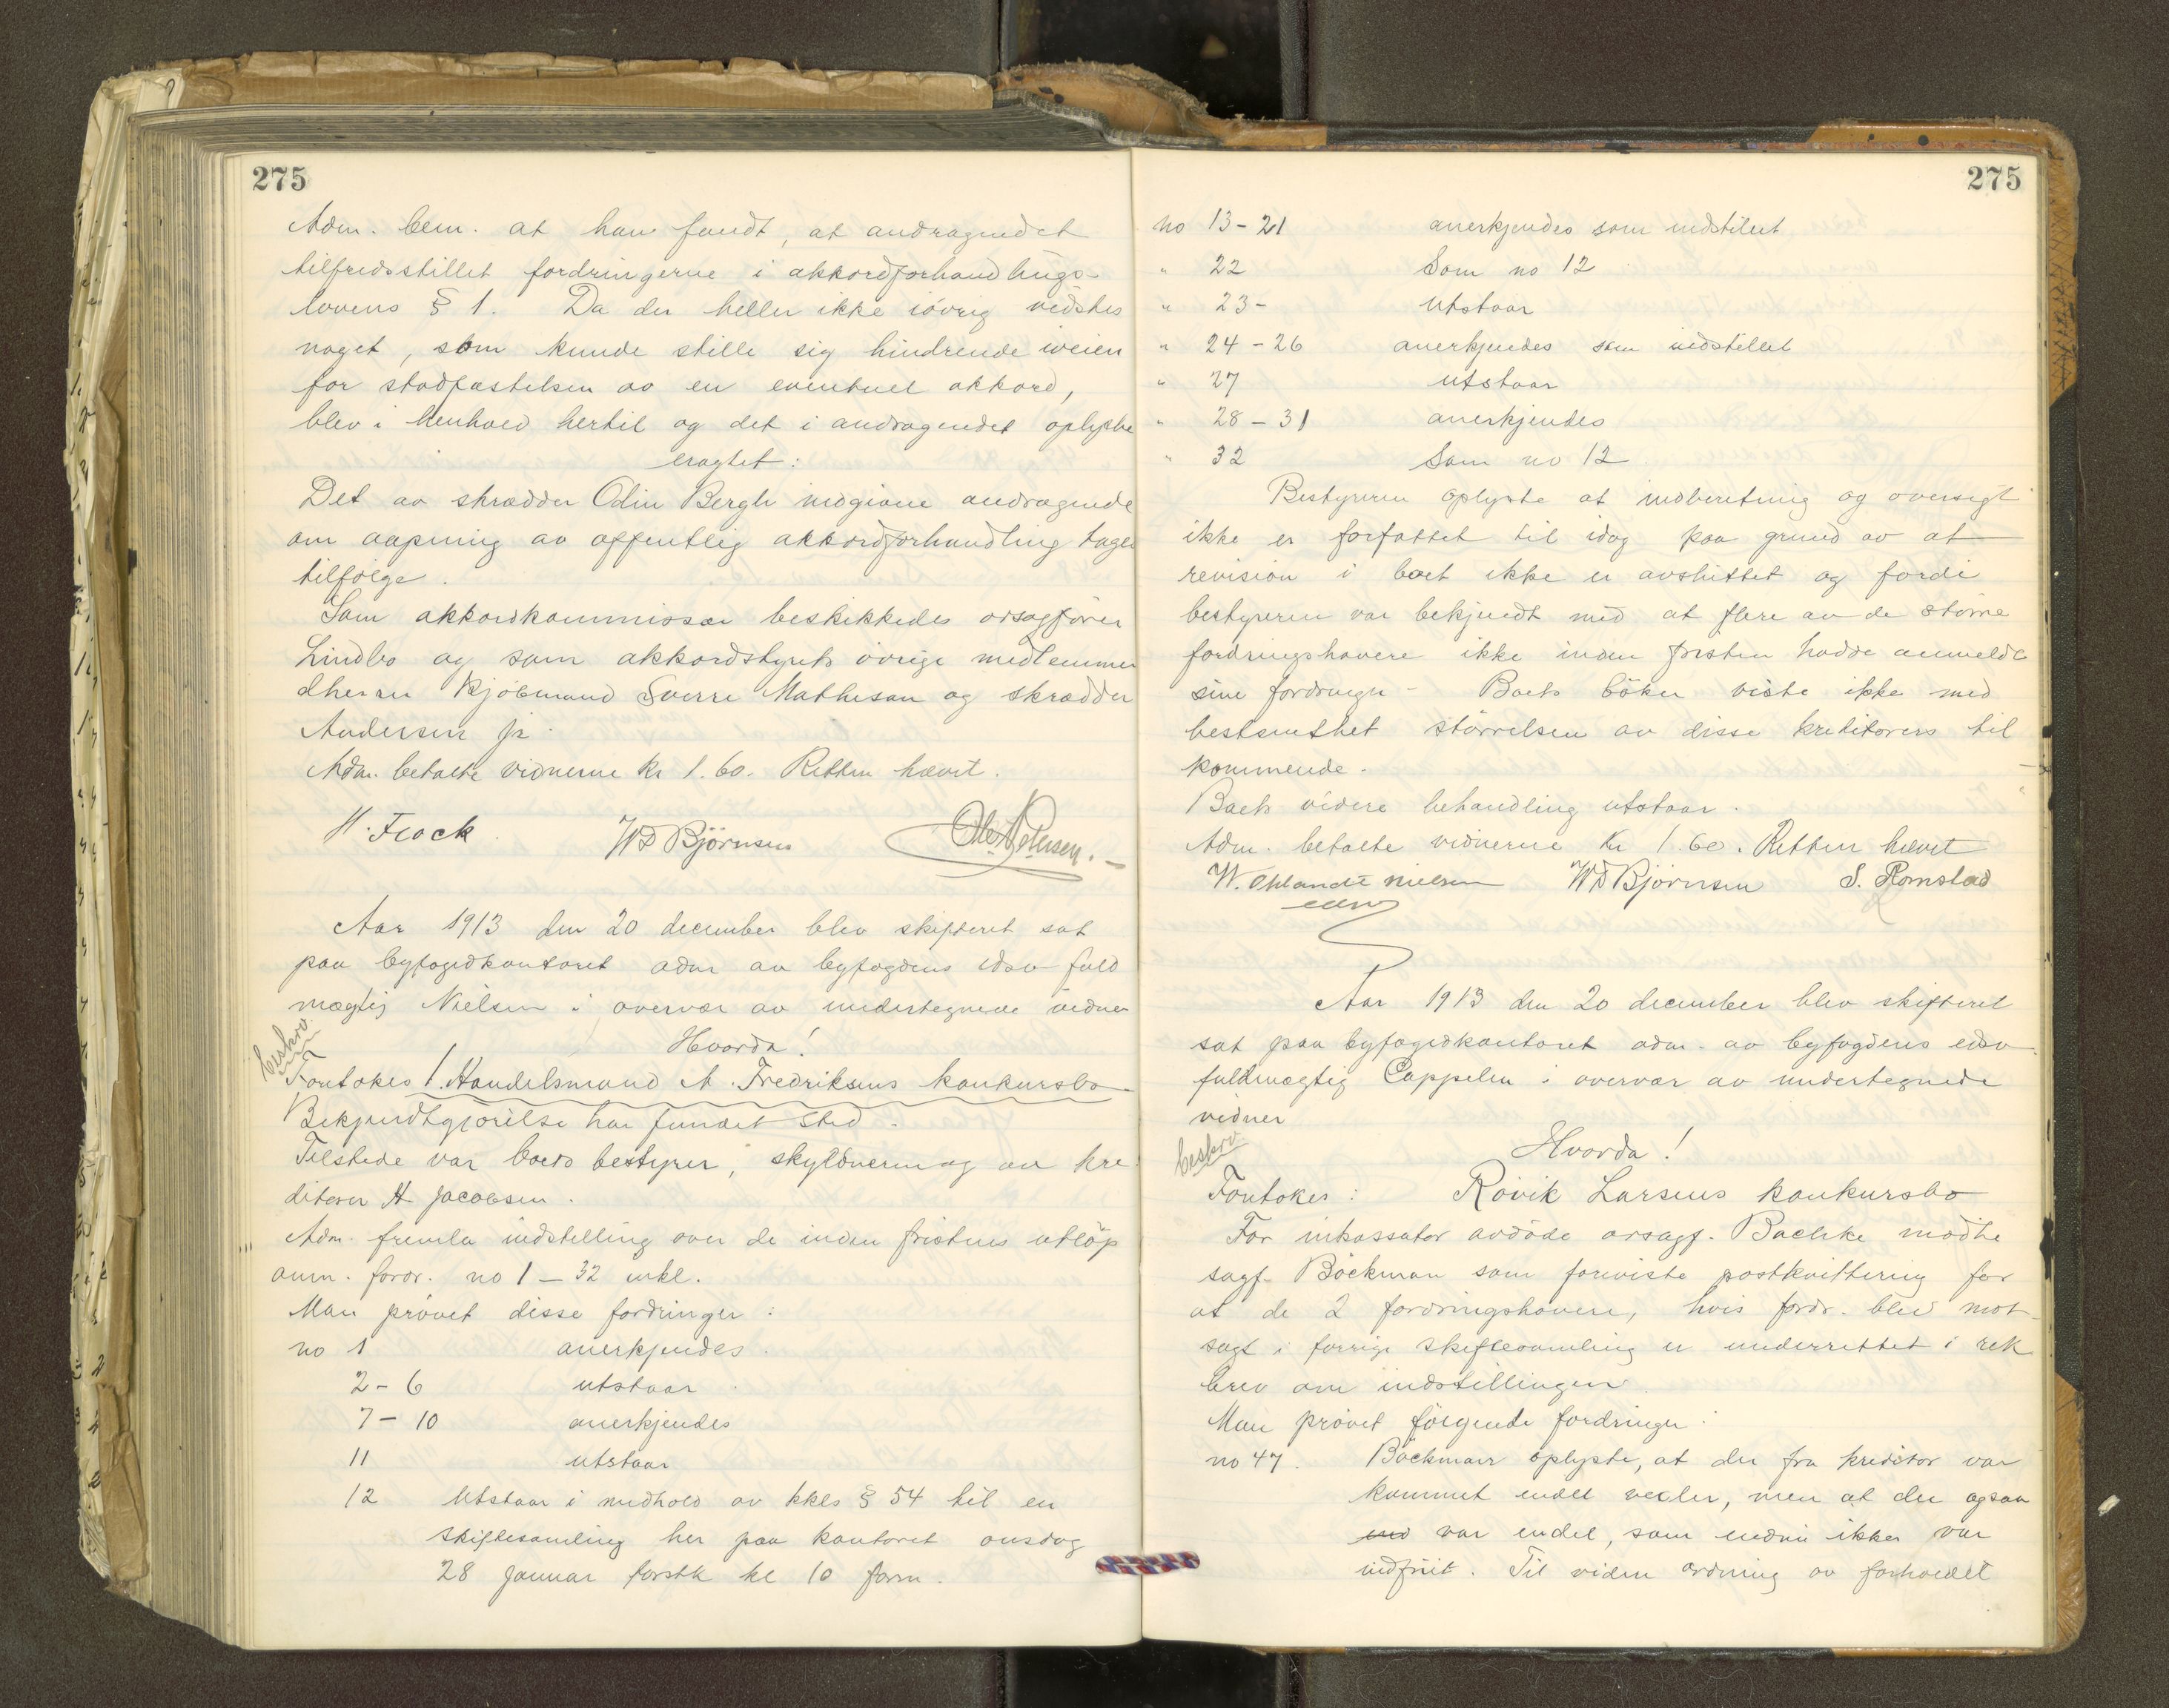 275
Adm. bem. at han fandt, at andragendet
tilfredsstillet fordringerne i akkordforhandlings-
lovens § 1. Da der heller ikke iövrig vidstes
noget, som kunde stille sig hindrende iveien
for stadfæstelsen av en eventuel akkord,
blev i henhold hertil og det i andragendet oplyste
eragtet:
Det av skrædder Odin Bergh indgivne andragende
om aapning av offentlig akkordforhandling tages
tilfölge.
Som akkordkommissær beskikkedes orsagförer
Lindbo og som akkordstyrets övrige medlemmer
dherrer kjöbmand Sverre Mathisen og skrædder
Andersen jr.
Adm. betalte vidnerne kr 1.60. Retten hævet.
H. Frock WD Björnsen Ole A Petersen.
Aar 1913 den 20 december blev skifteret sat
paa byfogedkontoret adm av byfogdens edsv fuld
mægtig Nielsen i overvær av undertegnede vidner
Hvorda!
beskrv
Foretokes 1. Handelsmand A. Fredriksens konkursbo
Bekjendtgjörelse har fundet sted.
Tilstede var boets bestyrer, skyldneren og av kre
ditorer A Jacobsen.
Adm. fremla indstilling over de inden fristens utlöp
anm. fordr. no 1 - 32 inkl.
Man prövet disse fordringer:
no 1 anerkjendes.
2 - 6 utstaar
7 - 10 anerkjendes
11 utstaar
12 Utstaar i medhold av kkls § 54 til en
skiftesamling her paa kontoret onsdag
28 januar förstk kl 10 form.
275
no 13 - 21 anerkjendes som indstillet
" 22 Som no 12
" 23 - utstaar
" 24 - 26 anerkjendes som indstillet
" 27 utstaar
" 28 - 31 anerkjendes
" 32 Som no 12
Bestyreren oplyste at indberetning og oversigt
ikke er forfattet til idag paa grund av at
revision i boet ikke er avsluttet og fordi
bestyreren var bekjendt med at flere av de större
fordringshavere ikke inden fristen hadde anmeldt
sine fordringer - Boets böker viste ikke med
bestemthet störrelsen av disse kreditorers til
kommende.
Boets videre behandling utstaar.
Adm. betalte vidnerne kr 1.60. Retten hævet
W. Ohlandt Nielsen WD Björnsen S. Romstad
edsv
Aar 1913 den 20 december blev skifteret
sat paa byfogedkontoret adm. av byfogdens edsv.
fuldmægtig Cappelen i overvær av undertegnede
vidner
Hvorda!
beskrv
Foretokes: Rövik Larsens konkursbo
For inkassator avdöde orsagf. Bachke mödte
sagf. Böckman som foreviste postkvittering for
at de 2 fordringshavere, hvis fordr. blev mot-
sagt i forrige skiftesamling er underrettet i rek
brev om indstillingen.
Man prövet fölgende fordringer:
no 47. Böckman oplyste, at der fra kreditor var
kommet endel vexler, men at der ogsaa
var endel, som endnu ikke var
indfriet. Til videre ordning av forholdet